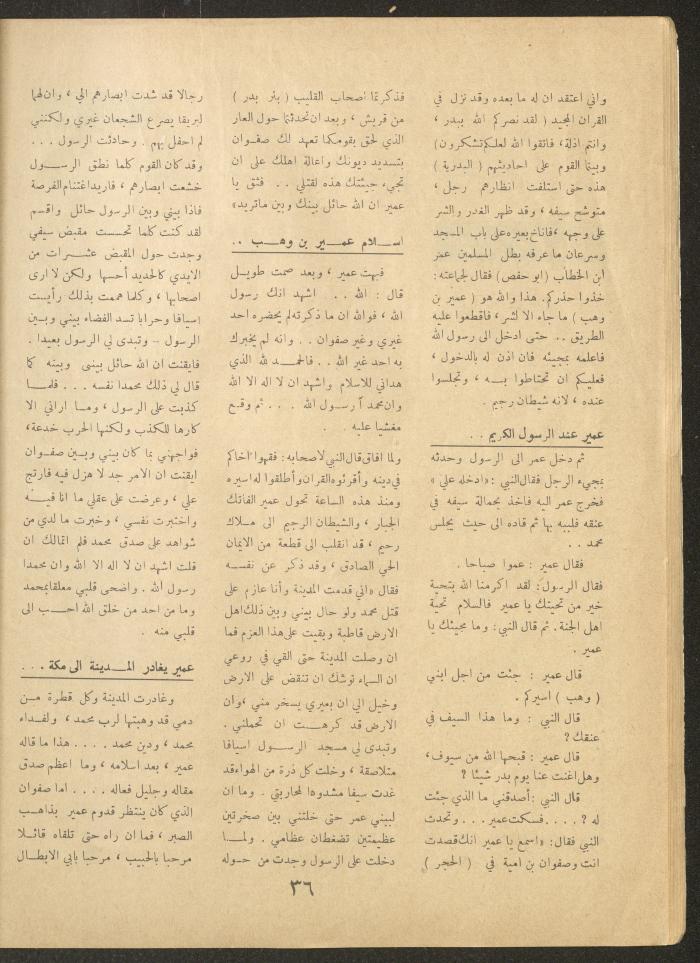 واني اعتقد ان له ما بعده وقد نزل في
القران المجيد ( لقد نصركم الله ببدر ،
وانتم اذلة، فاتقوا الله لعلكم تشكرون)
وبينما القوم على احاديثهم ( البدرية )
هذه حتى استلفت انظارهم رجل ،
متوشح سيفه ، وقد ظهر الغدر والشر
على وجهه ،فاناخ بعيره على باب المسجد
وسرعان ما عرفه بطل المسلمين عمر
ابن الخطاب (ابو حفص) فقال لجماعته :
خذوا حذركم. هذا والله هو ( عمير بن
وهب ) ما جاء الا لشر، فاقطعوا عليه
الطريق .. حتى ادخل الى رسول الله
فاعلمه بمجيئه فان اذن له بالدخول ،
فعليكم ان تحتاطوا بـــه ، وتجلسوا
عنده ، لانه شيطان رجيم .
عمير عند الرسول الكريم . .
ثم دخل عمر الى الرسول وحدثه
بمجيء الرجل فقال النبي : «ادخله علي »
فخرج عمر اليه فاخذ بحمالة سيفه في
عنقه فلببه بها ثم قاده الى حيث يجلس
محمد ..
فقال عمير : عموا صباحا .
فقال الرسول: لقد اكرمنا الله بتحية
خير من تحيتك يا عمير فالسلام تحية
اهل الجنة. ثم قال النبي: وما مجيئك يا
عمير .
قال عمير : جئت من اجل ابني
( وهب ) اسيركم .
قال النبي : وما هذا السيف في
عنقك ؟
قال عمير : قبحها الله من سيوف،
وهل اغنت عنا يوم بدر شيئا ؟
قال النبي :أصدقني ما الذي جئت
له ؟ . . . .فسكت عمير . . . وتحدث
النبي فقال: «اسمع يا عمير انك قصدت
انت وصفوان بن امية في ( الحجر )
فذكرتما أصحاب القليب ( بئر بدر )
من قريش ، وبعد ان تحدثتما حول العار
الذي لحق بقومكما تعهد لك صفوان
بتسديد ديونك واعالة اهلك على ان
تجيء جيئتك هذه لقتلي . . فثق يا
عمير ان الله حائل بينك وبين ماتريد»
اســلام عمـــير بن وهـــب ..
فبهت عمير ، وبعد صمت طويــل
قال : الله . . اشهد انك رسول
الله ، فوالله ان ما ذكرته لم يحضره احد
غيري وغير صفوان . . وانه لم يخبرك
به احد غير الله . . فالحمــد لله الذي
هداني للاسلام واشهد ان لا اله الا الله
وان محمدآ رسول الله . . . ثم وقع
مغشيا عليه . .
ولما افاق قال النبي لاصحابه: فقهوا اخاكم
في دينه وأقرئوه القران وأطلقوا له اسيره
ومنذ هذه الساعة تحول عمير الفاتك
الجبار ، والشيطان الرجيم الى مــلاك
رحيم ، قد انقلب الى قطعة من الايمان
الحي الصادق ، وقد ذكر عن نفســه
فقال «اني قدمت المدينة وأنا عازم على
قتل محمد ولو حال بيني وبين ذلك اهل
الارض قاطبة وبقيت على هذا العزم فما
ان وصلت المدينة حتى القي في روعي
ان السماء توشك ان تنقض على الارض
وخيل الي ان بعيري يسخر مني ،وان
الارض قد كرهـــت ان تحملني .
وتبدى لي مسجد الرســـول اسيافا
متلاصقة ، وخلت كل ذرة من الهواء قد
غدت سيفا مشدودا لمحاربتي . وما ان
لببني عمر حتى خلتني بين صخرتين
عظيمتين تضغطان عظامي . ولمـــا
دخلت على الرسول وجدت من حـوله
رجالا قد شدت ابصارهم الي ، وان لها
لبريقا يصرع الشجعان غيري ولكنني
لم احفل بهم . وحادثت الرسول . . .
وقد كان القوم كلما نطق الرســـول
خشعت ابصارهم ، فاريد اغتنام الفرصة
فاذا بيني وبين الرسول حائل واقسم
لقد كنت كلما تحسست مقبض سيفي
وجدت حول المقبض عشـــرات من
الايدي كالحديد أحسها ولكن لا ارى
اصحابها ، وكلما هممت بذلك رأيـت
اسيافا وحرابا تسد الفضاء بيني وبــين
الرسول .. وتبدى لي الرسول بعيدا .
فايقنت ان الله حائل بيني وبينه كما
قال لي ذلك محمدا نفسه ... فلمــا
كذبت على الرسول ، ومـا اراني الا
كارها للكذب ولكنها الحرب خدعة،
فواجهني بما كان بيني وبــين صفـوان
ايقنت ان الامر جد لا هزل فيه فارتج
علي ، وعرضت على عقلي ما انا فيــه
واختبرت نفسي ، وخبرت ما لدي من
شواهد على صدق محمد فلم اتمالك ان
قلت اشهد ان لا اله الا الله وان محمدا
رسول الله . واضحى قلبي معلقا بمحمد
وما من احد من خلق الله احــب الى
قلبي منه .
عمير يغادر المـــدينة الى مكة . . .
وغادرت المدينة وكل قطرة مــن
دمي قد وهبتها لرب محمد ، ولفـداء
محمد ، ودين محمد . . . . هذا ما قاله
عمير ، بعد اسلامه ، وما اعظم صدق
مقاله وجليل فعاله . . . . اما صفوان
الذي كان ينتظر قدوم عمير بذاهب
الصبر ، فما ان راه حتى تلقاه قائــلا
مرحبا بالحبيب ، مرحبا بابي الابطـال
٣٦